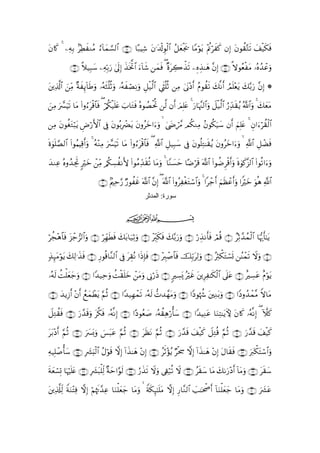 فَكَيْفَ تَتَّقُونَ إِن كَفَرْتُمْ يَوْمًا يَجْعَلُ ٱلْوِلْدَٰنَ شِيبًا ۝ ٱلسَّمَآءُ مُنفَطِرٌۢ بِهِۦ ۚ كَانَ
وَعْدُهُۥ مَفْعُولًا ۝ إِنَّ هَٰذِهِۦ تَذْكِرَةٌ ۖ فَمَن شَآءَ ٱتَّخَذَ إِلَىٰ رَبِّهِۦ سَبِيلًا ۝
۞ إِنَّ رَبَّكَ يَعْلَمُ أَنَّكَ تَقُومُ أَدْنَىٰ مِن ثُلُثَىِ ٱلَّيْلِ وَنِصْفَهُۥ وَثُلُثَهُۥ وَطَآئِفَةٌ مِّنَ ٱلَّذِينَ
مَعَكَ ۚ وَٱللَّهُ يُقَدِّرُ ٱلَّيْلَ وَٱلنَّهَارَ ۚ عَلِمَ أَن لَّن تُحْصُوهُ فَتَابَ عَلَيْكُمْ ۖ فَٱقْرَءُوا۟ مَا تَيَسَّرَ مِنَ
ٱلْقُرْءَانِ ۚ عَلِمَ أَن سَيَكُونُ مِنكُم مَّرْضَىٰ ۙ وَءَاخَرُونَ يَضْرِبُونَ فِى ٱلْأَرْضِ يَبْتَغُونَ مِن
فَضْلِ ٱللَّهِ ۙ وَءَاخَرُونَ يُقَٰتِلُونَ فِى سَبِيلِ ٱللَّهِ ۖ فَٱقْرَءُوا۟ مَا تَيَسَّرَ مِنْهُ ۚ وَأَقِيمُوا۟ ٱلصَّلَوٰةَ
وَءَاتُوا۟ ٱلزَّكَوٰةَ وَأَقْرِضُوا۟ ٱللَّهَ قَرْضًا حَسَنًا ۚ وَمَا تُقَدِّمُوا۟ لِأَنفُسِكُم مِّنْ خَيْرٍ تَجِدُوهُ عِندَ
ٱللَّهِ هُوَ خَيْرًا وَأَعْظَمَ أَجْرًا ۚ وَٱسْتَغْفِرُوا۟ ٱللَّهَ ۖ إِنَّ ٱللَّهَ غَفُورٌ رَّحِيمٌۢ ۝
سورة: المدثر
بِسْمِ ٱللَّهِ ٱلرَّحْمَٰنِ ٱلرَّحِيمِ
يَٰٓأَيُّهَا ٱلْمُدَّثِّرُ ۝ قُمْ فَأَنذِرْ ۝ وَرَبَّكَ فَكَبِّرْ ۝ وَثِيَابَكَ فَطَهِّرْ ۝ وَٱلرُّجْزَ فَٱهْجُرْ
۝ وَلَا تَمْنُن تَسْتَكْثِرُ ۝ وَلِرَبِّكَ فَٱصْبِرْ ۝ فَإِذَا نُقِرَ فِى ٱلنَّاقُورِ ۝ فَذَٰلِكَ يَوْمَئِذٍ
يَوْمٌ عَسِيرٌ ۝ عَلَى ٱلْكَٰفِرِينَ غَيْرُ يَسِيرٍ ۝ ذَرْنِى وَمَنْ خَلَقْتُ وَحِيدًا ۝ وَجَعَلْتُ لَهُۥ
مَالًا مَّمْدُودًا ۝ وَبَنِينَ شُهُودًا ۝ وَمَهَّدتُّ لَهُۥ تَمْهِيدًا ۝ ثُمَّ يَطْمَعُ أَنْ أَزِيدَ ۝
كَلَّآ ۖ إِنَّهُۥ كَانَ لِءَايَٰتِنَا عَنِيدًا ۝ سَأُرْهِقُهُۥ صَعُودًا ۝ إِنَّهُۥ فَكَّرَ وَقَدَّرَ ۝ فَقُتِلَ
كَيْفَ قَدَّرَ ۝ ثُمَّ قُتِلَ كَيْفَ قَدَّرَ ۝ ثُمَّ نَظَرَ ۝ ثُمَّ عَبَسَ وَبَسَرَ ۝ ثُمَّ أَدْبَرَ
وَٱسْتَكْبَرَ ۝ فَقَالَ إِنْ هَٰذَآ إِلَّا سِحْرٌ يُؤْثَرُ ۝ إِنْ هَٰذَآ إِلَّا قَوْلُ ٱلْبَشَرِ ۝ سَأُصْلِيهِ
سَقَرَ ۝ وَمَآ أَدْرَىٰكَ مَا سَقَرُ ۝ لَا تُبْقِى وَلَا تَذَرُ ۝ لَوَّاحَةٌ لِّلْبَشَرِ ۝ عَلَيْهَا تِسْعَةَ
عَشَرَ ۝ وَمَا جَعَلْنَآ أَصْحَٰبَ ٱلنَّارِ إِلَّا مَلَٰٓئِكَةً ۙ وَمَا جَعَلْنَا عِدَّتَهُمْ إِلَّا فِتْنَةً لِّلَّذِينَ